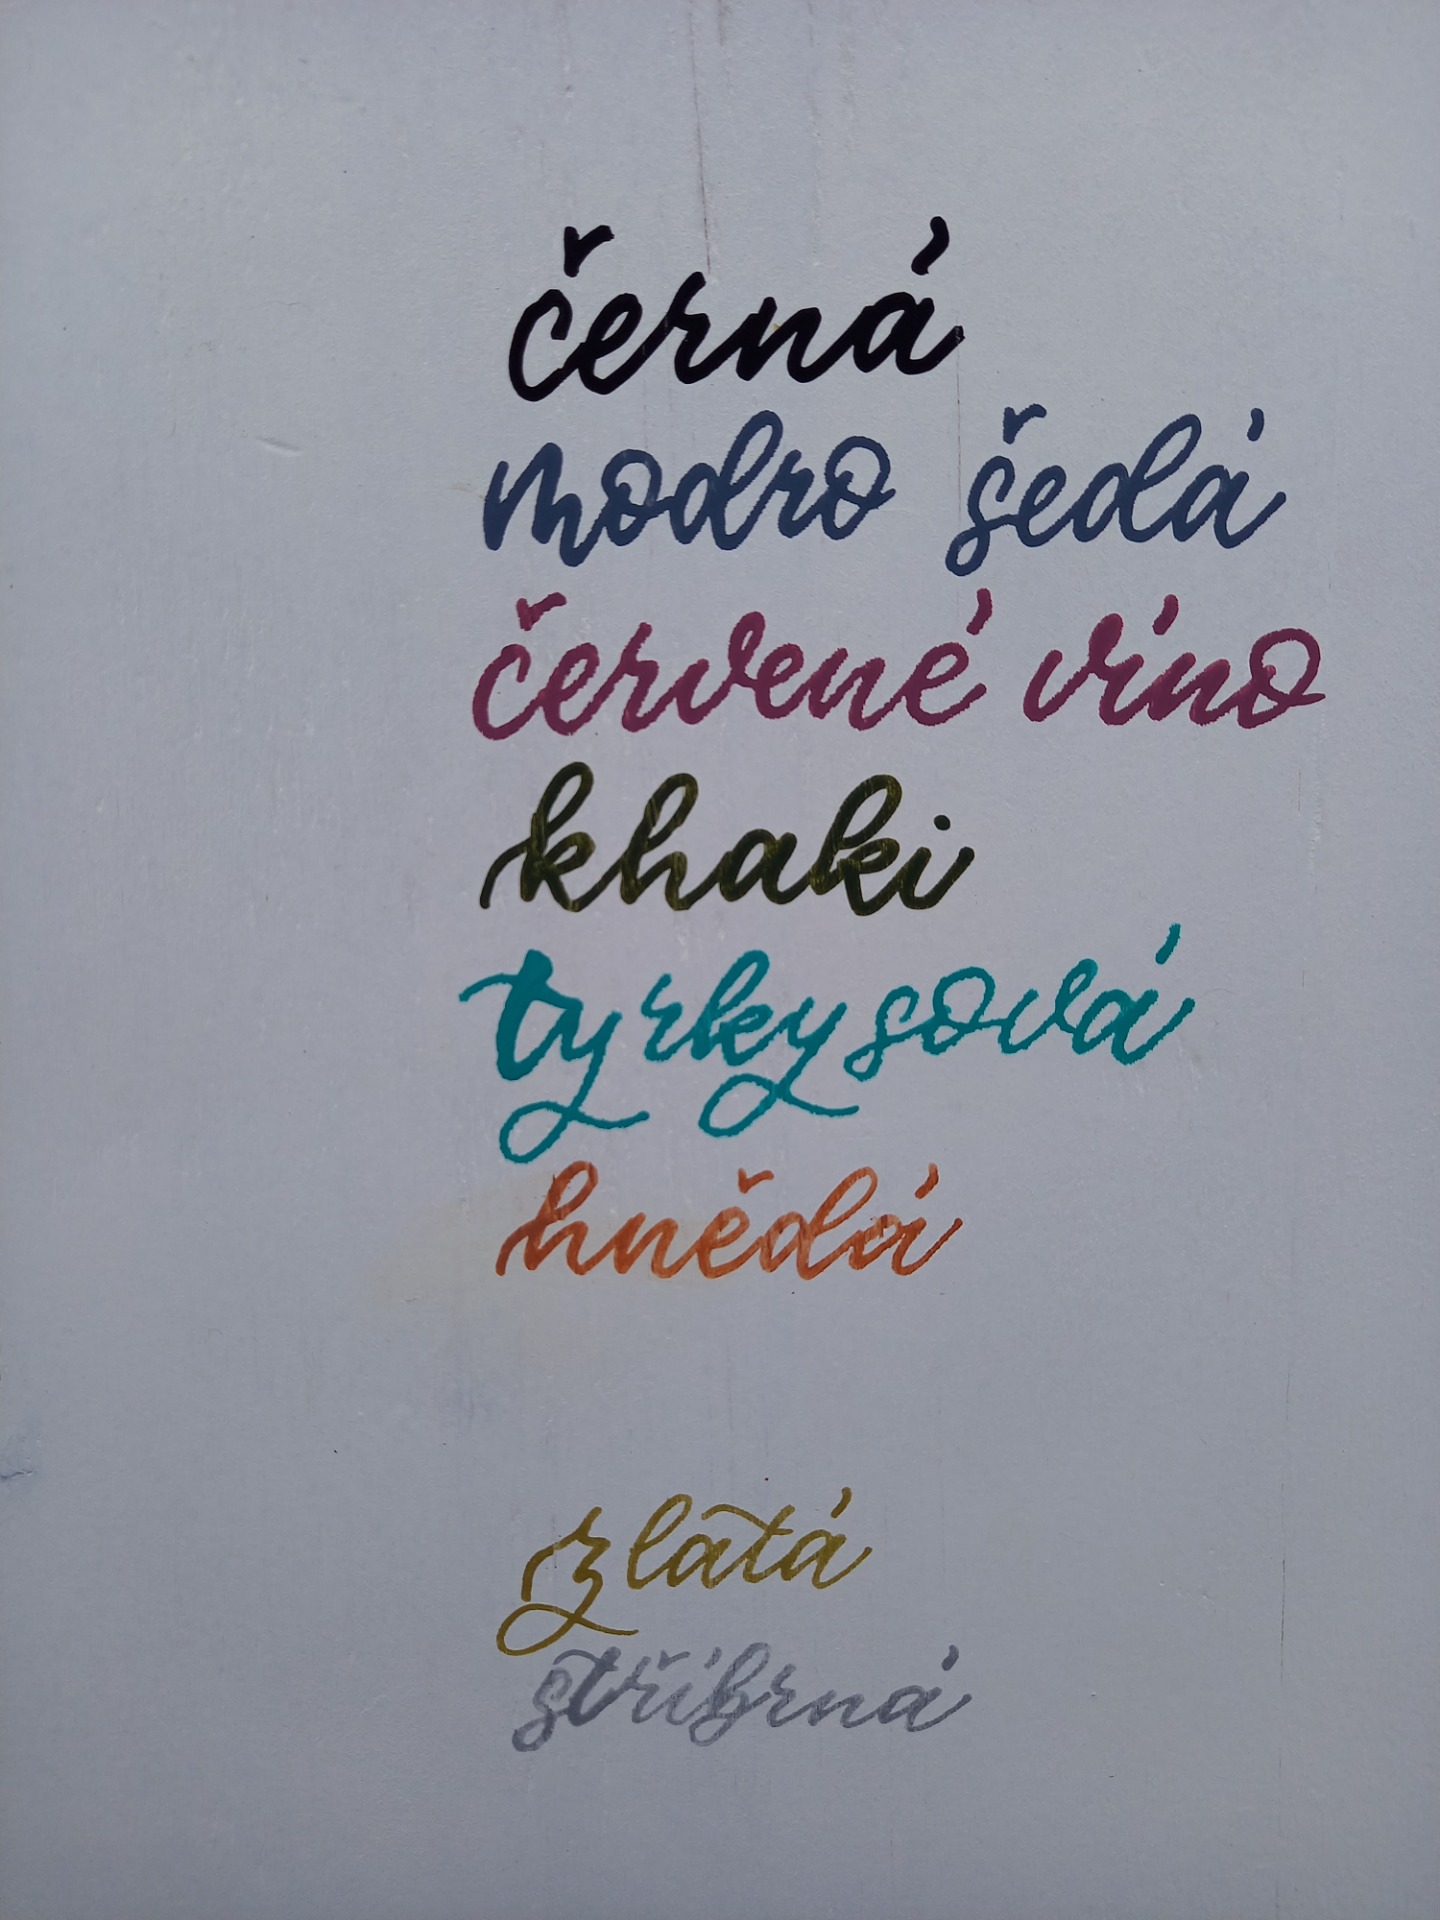 černá
modro šedá
červené víno
khaki
tyrkysová
hnědá
zlatá
stříbrná